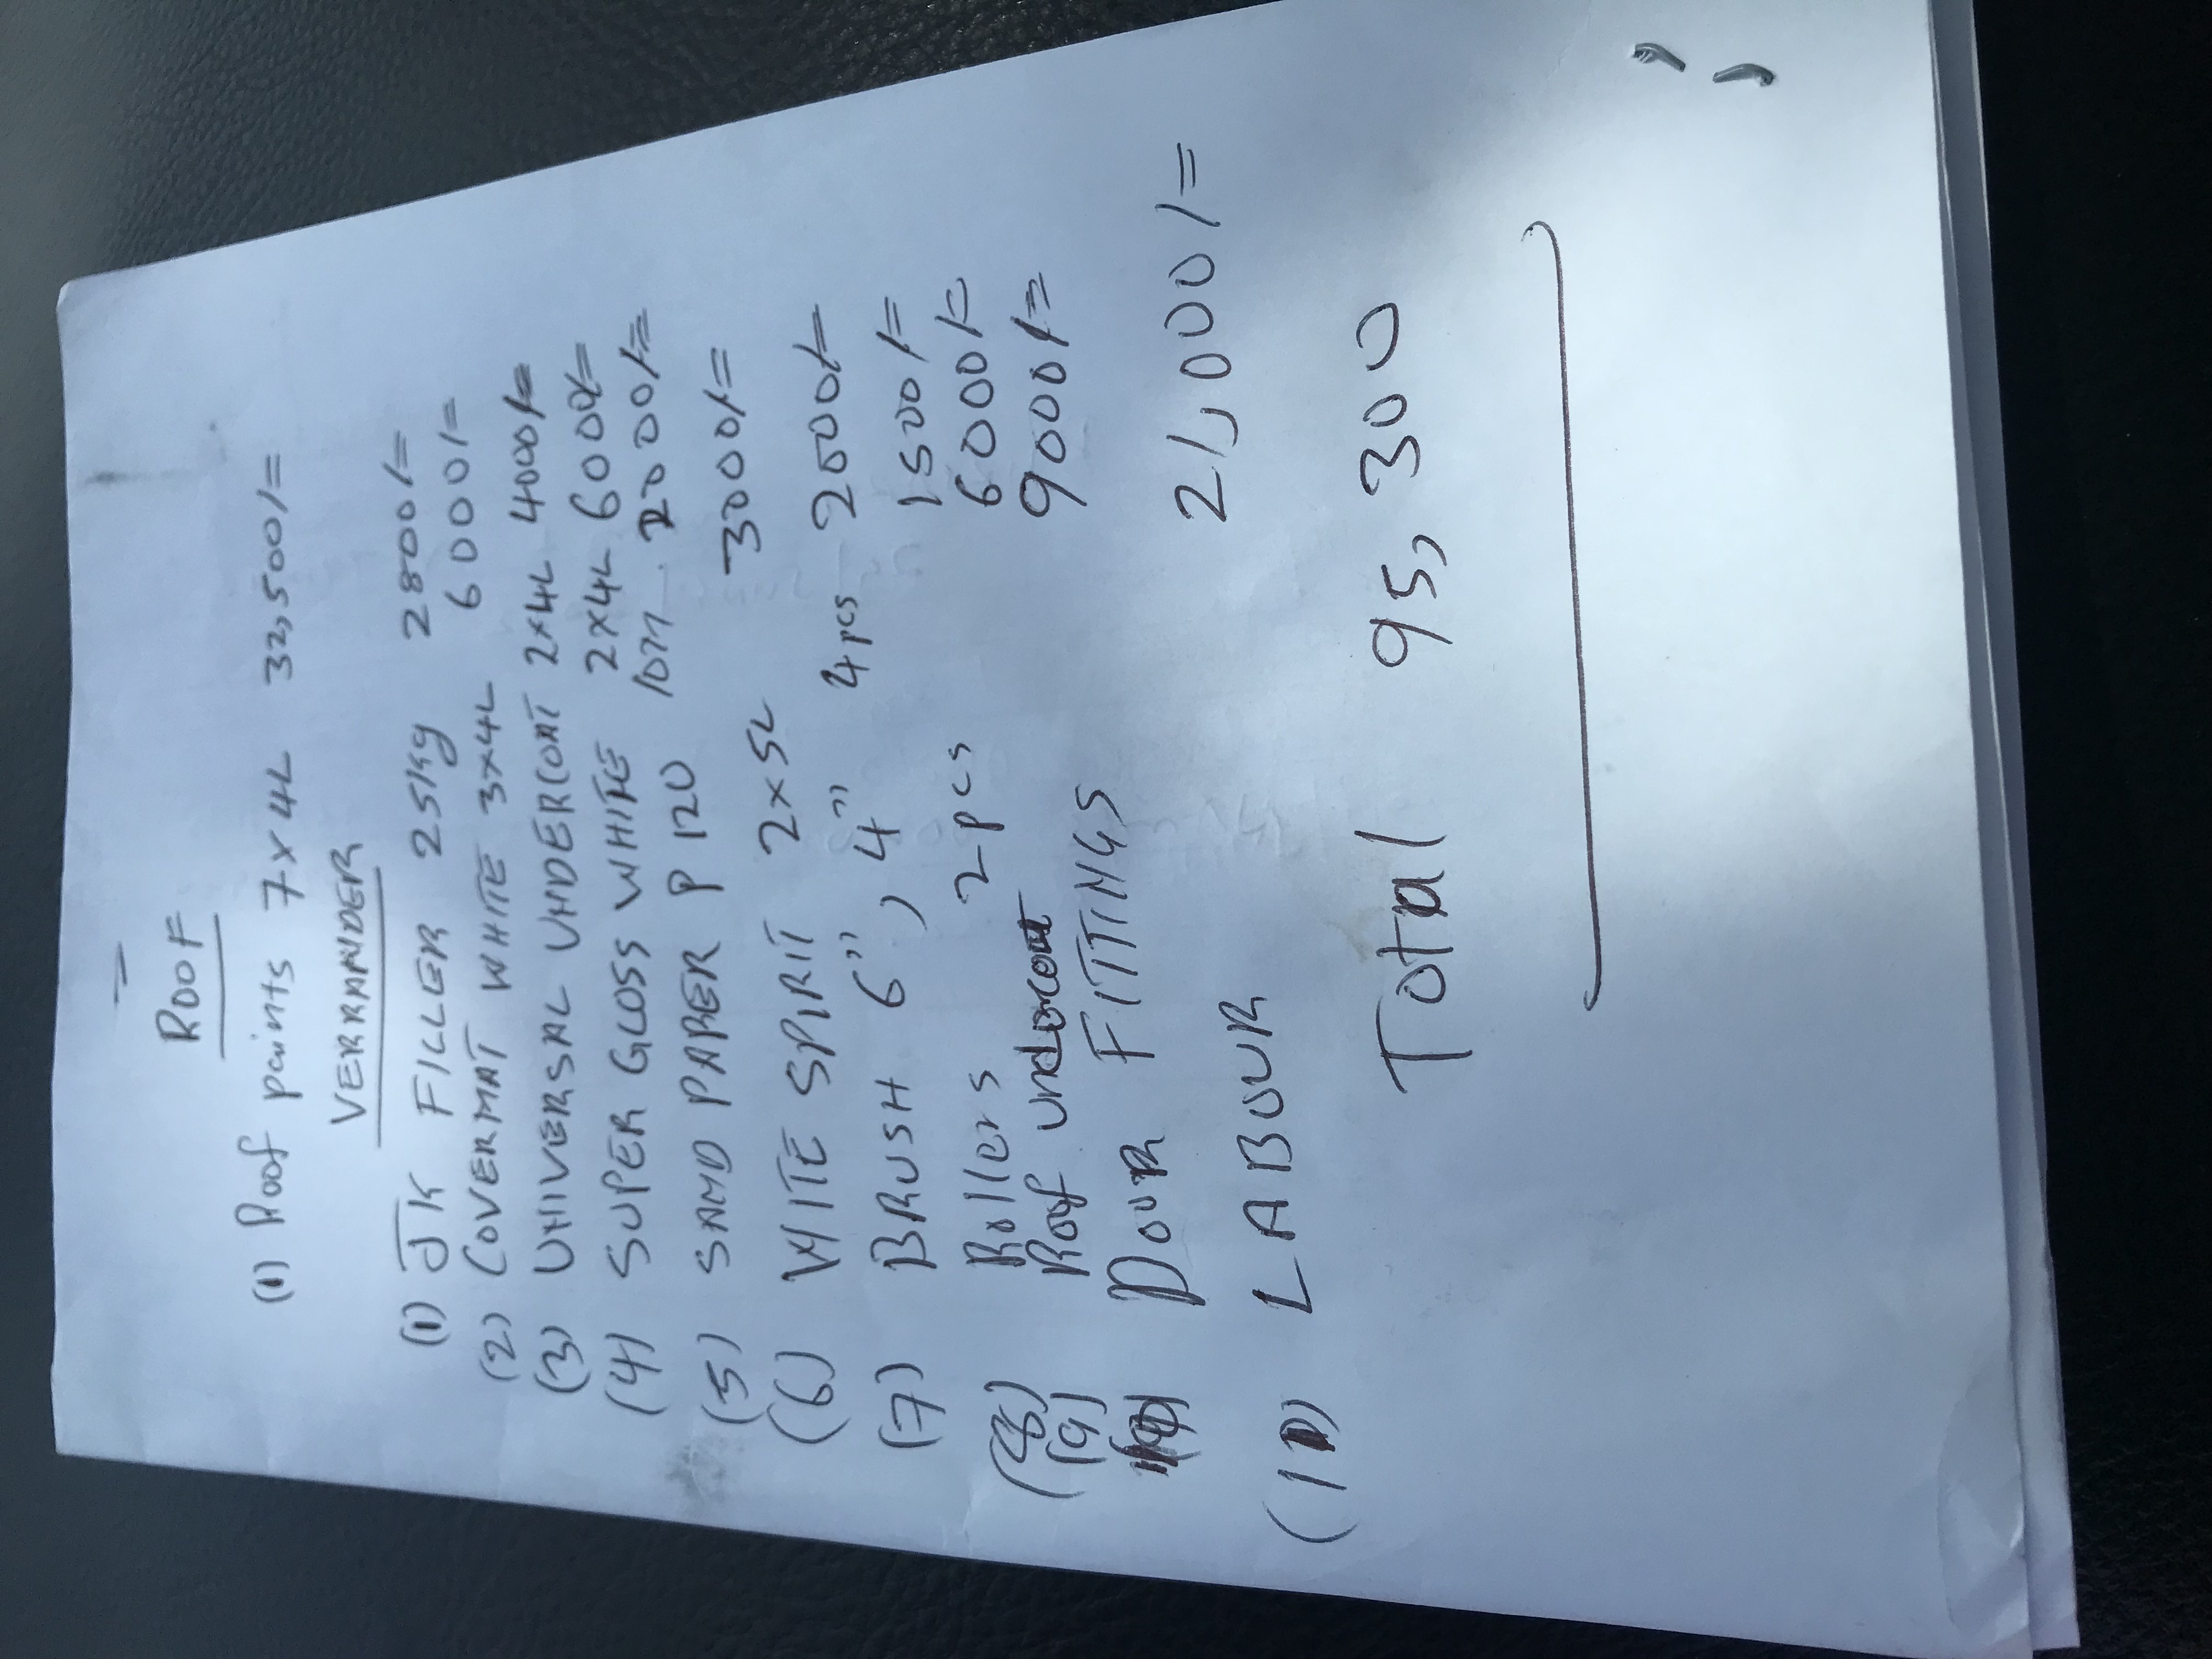 ROOF
(1) Roof paints 7x4L 32,500/=
VERRANDER
(1) JK FILLER 25kg 2800/=
(2) COVERMAT WHITE 3x4L 6000/=
(3) UNIVERSAL UNDERCOAT 2x4L 4000/=
(4) SUPER GLOSS WHITE 2x4L 6000/=
(5) SAND PAPER P 120 10m 2000/=
(6) WHITE SPIRIT 2x5L 3000/=
(7) BRUSH 6", 4" 4pcs 2000/=
(8) Rollers 2-pcs 1500/=
(9) Roof undercoat 6000/=
DOUR FITTINGS 9000/=
(11) LABOUR 21,000/=
Total 95,300